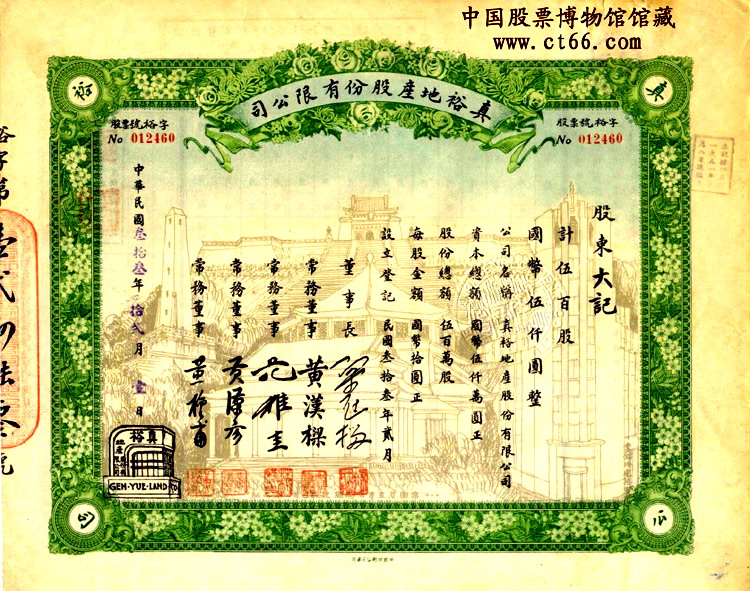 中国股票博物馆馆藏
www.ct66.com
真裕地產股份有限公司
真
裕
公
司
股票號裕字
No 012460
股票號裕字
No 012460
股東大記
計伍百股
國幣伍仟圓整
公司名稱 真裕地產股份有限公司
資本總額 國幣伍仟萬圓正
股份總額 伍百萬股
每股金額 國幣拾圓正
設立登記 民國叁拾叁年貳月
董事長
常務董事 黃漢樑
常務董事
常務董事
常務董事
中華民國叁拾叁年拾貳月壹日
真裕
地產股份有限公司
GEN-YUE-LAND
裕字第